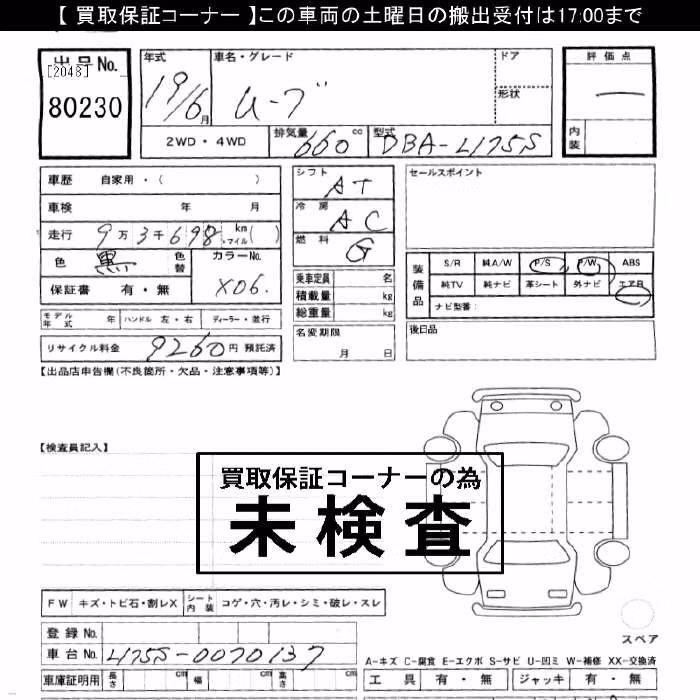 【 買取保証コーナー 】この車両の土曜日の搬出受付は17:00まで
出品No.
[2048]
80230
年式
19/6月
車名・グレード
ムーブ
ドア
形状
評価点
内装
2WD・4WD
排気量 660 cc
型式 DBA-L175S
車歴 自家用・( )
車検 年 月
走行 9万3千698 km マイル ( )
色 黒 色替
カラーNo. X06.
保証書 有・無
シフト AT
冷房 AC
燃料 G
乗車定員 名
積載量 kg
総重量 kg
セールスポイント
装備品
S/R 純A/W P/S P/W ABS
純TV 純ナビ 革シート 外ナビ エアB
ナビ型番:
モデル年式 年 ハンドル 左・右 ディーラー・並行
名変期限
月 日
後日品
リサイクル料金 9260円 預託済
【出品店申告欄(不良箇所・欠品・注意事項等)】
【検査員記入】
買取保証コーナーの為
未検査
FW キズ・トビ石・割レX シート内装 コゲ・穴・汚レ・シミ・破レ・スレ
登録No.
車台No. L175S-0070137
車庫証明用 長さ cm 幅 cm 高さ cm
スペア
A-キズ C-腐食 E-エクボ S-サビ U-凹ミ W-補修 XX-交換済
工具 有・無 ジャッキ 有・無